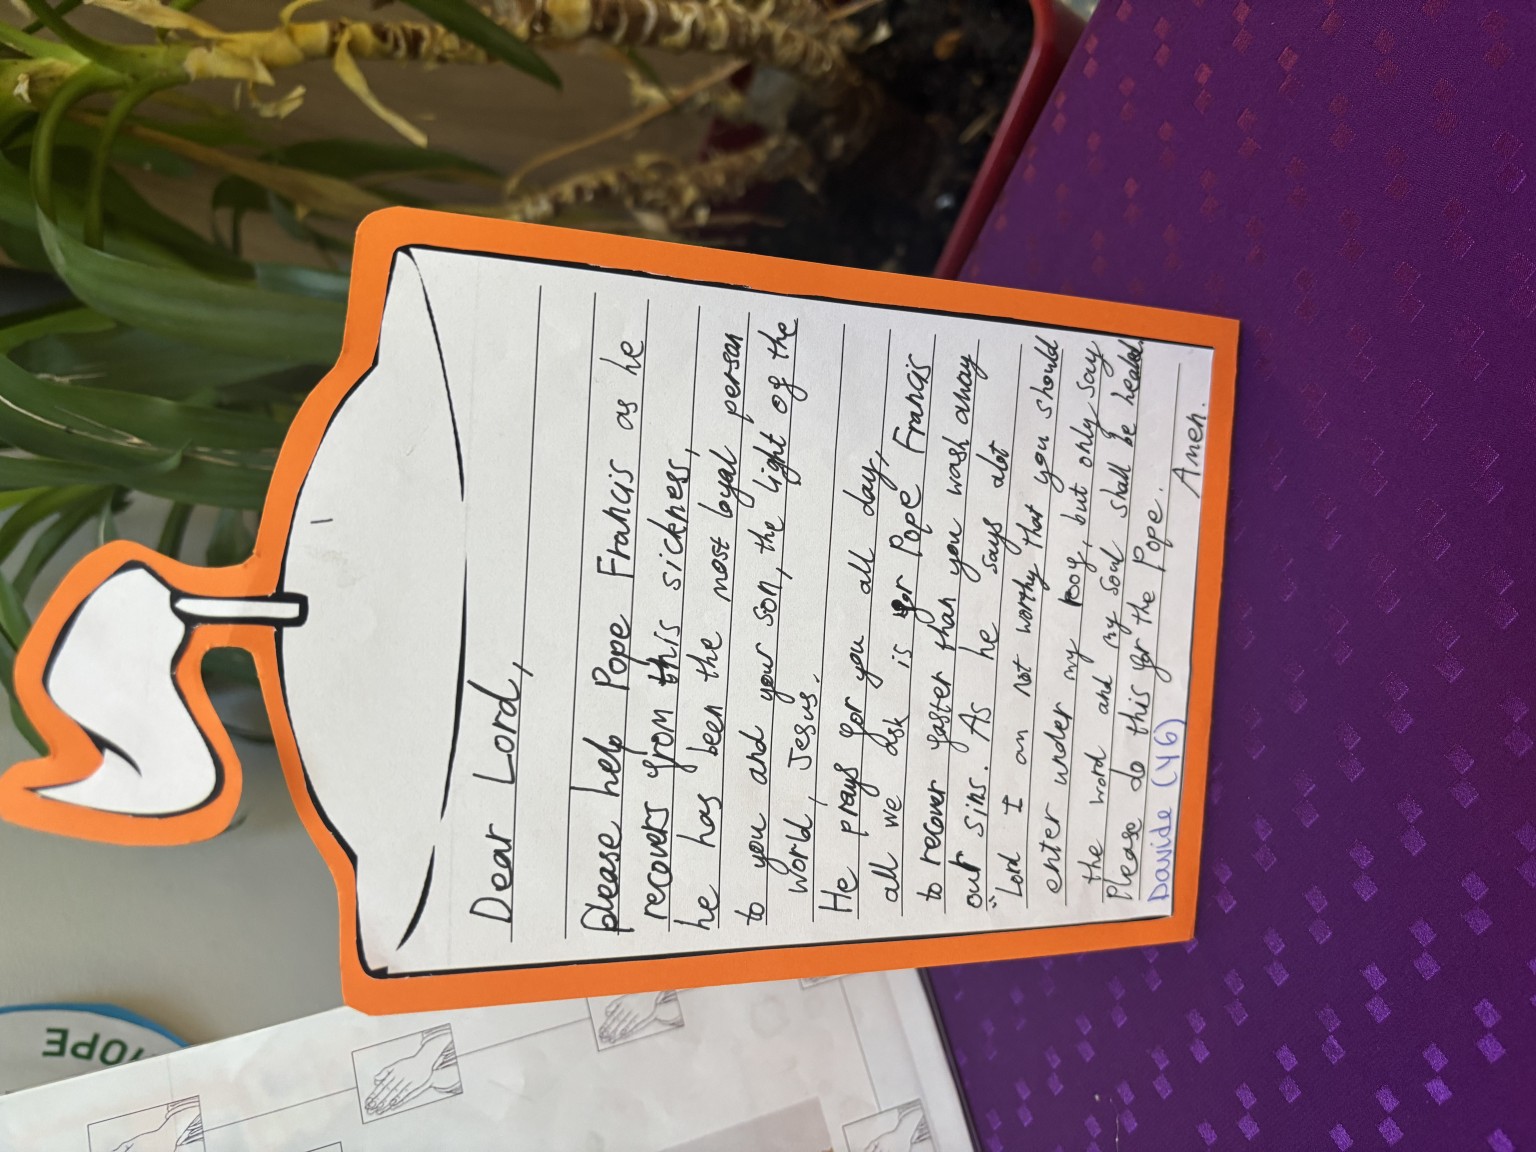 Dear Lord,
please help Pope Francis as he
recovers from this sickness,
he has been the most loyal person
to you and your son, the light of the
world, Jesus.
He prays for you all day,
all we ask is for Pope Francis
to recover faster than you wash away
our sins. As he says alot
"Lord I am not worthy that you should
enter under my roof, but only say
the word and my soul shall be healed.
Please do this for the Pope.
Amen.
Davide (Y6)
HOPE